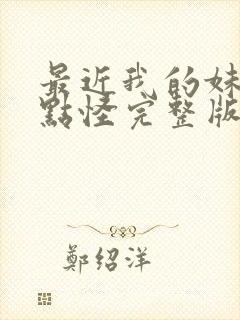 最近我的妹
點怪完整版
鄭绍洋